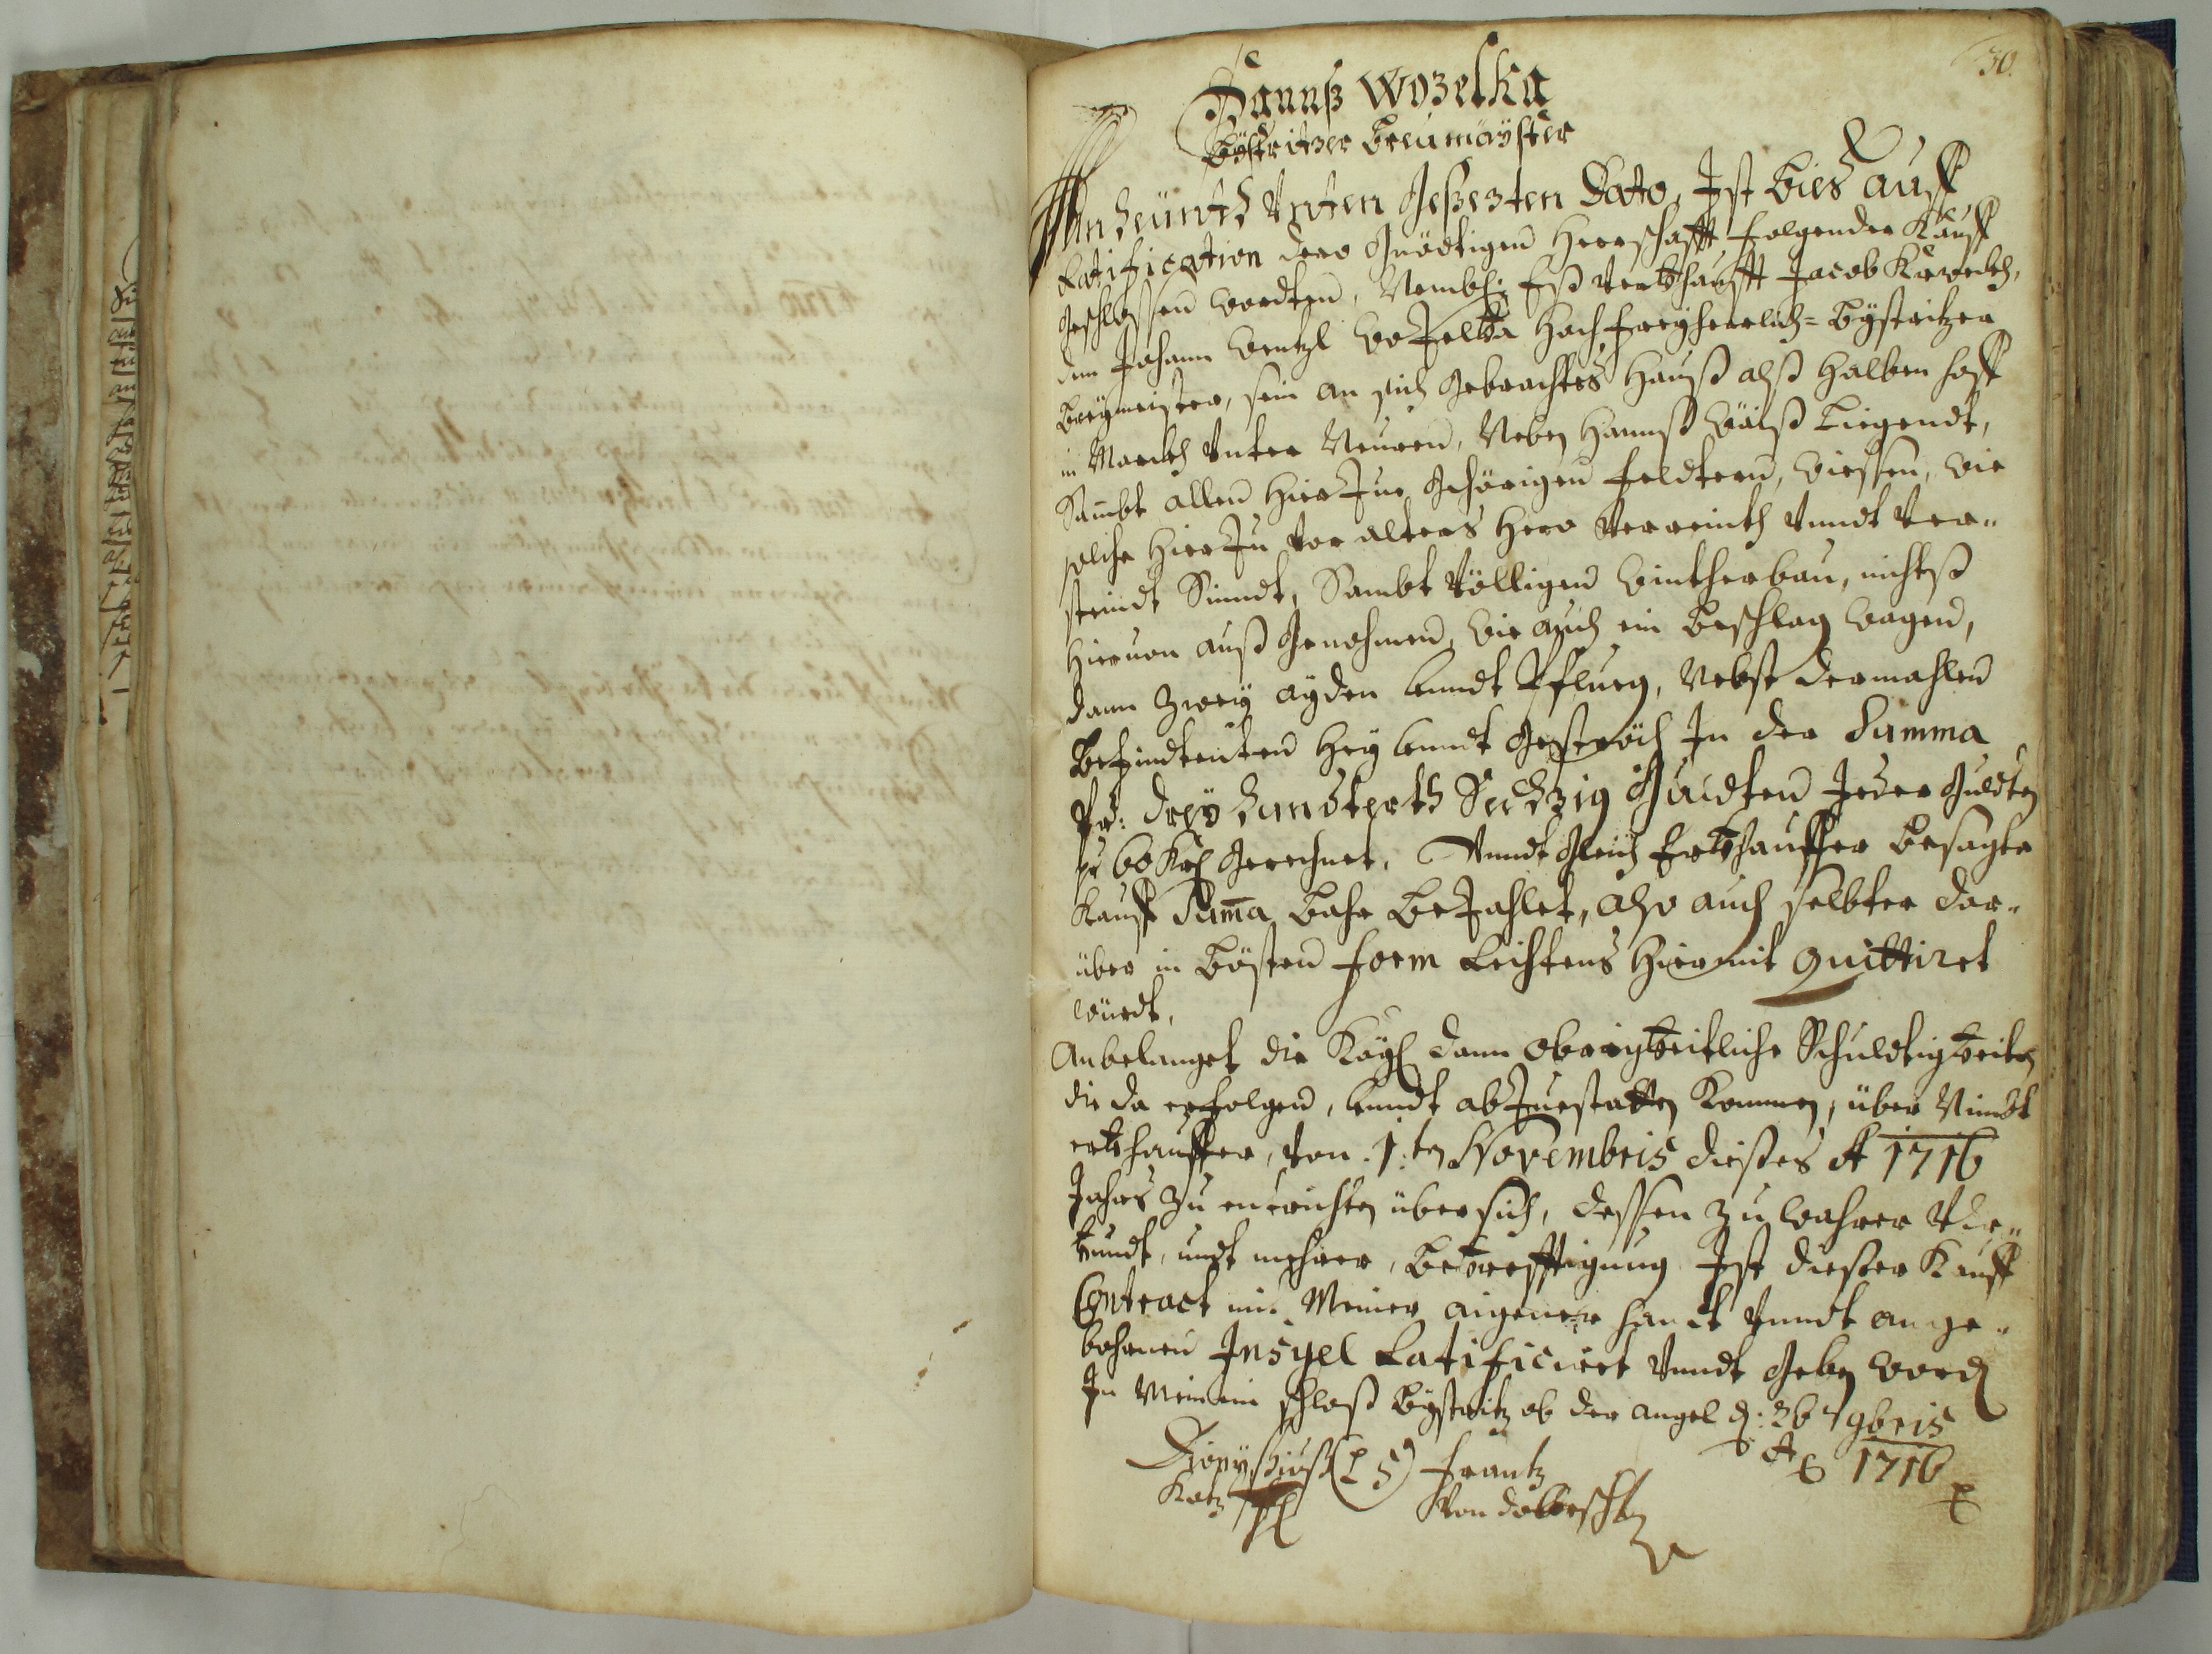 30.
Hannß Wozelka
Bÿstritzer Breumaÿster
An heünth Vnten Geßezten Dato, Ist Bies auff
Ratification dero Gnödtigen Herrschafft folgender Kauff
Geschlossen wordten, Nembl: Eß Verkhaufft Jacob
dem Johann Wentzl Wozelka Hochfreyherrlich= Bÿstritzer
Breÿmeister, sein an sich gebrachtes Hauß alß Halben Hoff
in Marckh Vnter Neuren, Neben Hannß Liegendt,
Sambt allen Hierzue Gehörigen feldtern, Wiessen, wie
solche Hierzu Vor alters Hero Verreinth Vnndt Ver=
steindt Sinndt, Sambt Völligen Wintherbau, nichtß
Hieruon auß Genohmen, wie auch ein Beschlag wagen,
dann Zweÿ ayden Vnndt Pflueg, Nebst dermahlen
Befindtenten Heÿ Vnndt Gestroÿh In der Summa
Pr: dreÿ hundterth Sechzig Guldten Jeder Guldten
pr 60 Kr Gerechnet, Vnndt Gleich Erkhauffer Besagte
Kauff Summa Bahr Bezahlet, also auch selbter dar=
über in Bösten form Leistens Hiermit quittiret
würdt,
Anbelanget die Kaÿl dann Obrigkeitliche Schuldtigkeiten
die da erfolgen, Vnndt abzuestatten Kommen, über Nimbt
erkhauffer, Von 1:ten Novembris dießes A 1716
Jahrs Zu entrichten über sich, dessen Zu wahrer Vhr=
kundt, undt mehrer, Bekrefftigung Ist dießer Kauff
Contract mit Meiner aigener Handt Vnndt ange=
bohrnen Insÿgel Ratificiret Vnndt Geben word
In Meinem schloß Bÿstritz ob der Angel d: 26 9bris
A 1716
Dionÿsius (L S) Frantz
Katz Von